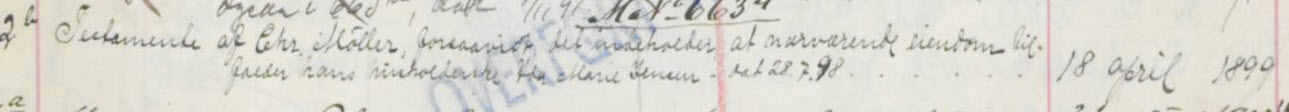 M. No 663 4
2 b Testamente af Chr. Möller, forsaavidt det indeholder, at nærværende eiendom til-
falder hans husholderske Marie Jensen - dat 28.7.98. . . . . . . 18 april 1899
OVERF
a